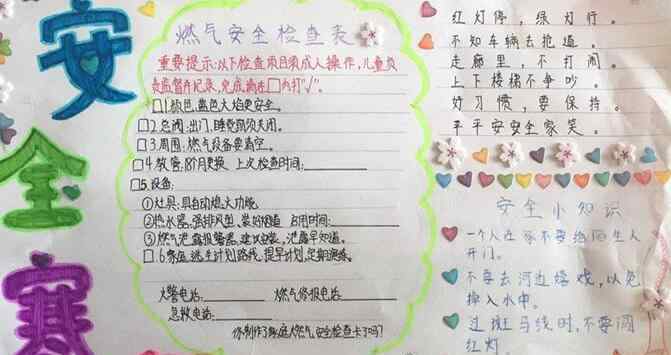 安
全
寒
燃气安全检查表
重要提示:以下检查项目须成人操作,儿童负
责监督并记录,完成请在□内打"√"。
□1.颜色:蓝色火焰更安全。
□2.总阀:出门、睡觉前须关闭。
□3.周围:燃气设备要清空。
□4.软管:18个月更换 上次检查时间:
□5.设备:
①灶具:具自动熄火功能
②热水器:强排风型,装好烟道 启用时间:
③燃气泄露报警器:建议安装,泄露早知道。
□.6.务必:逃生计划路线,提早计划,定期演练。
火警电话: 燃气修报电话:
急救电话:
你制作了家庭燃气安全检查卡了吗?
红灯停,绿灯行。
不知车辆去抢道。
走廊里,不打闹。
上下楼梯不争吵。
好习惯,要保持。
平平安安全家笑。
安全小知识
一个人在家不要给陌生人
开门。
不要去河边嬉戏,以免
掉入水中。
过斑马线时,不要闯
红灯。